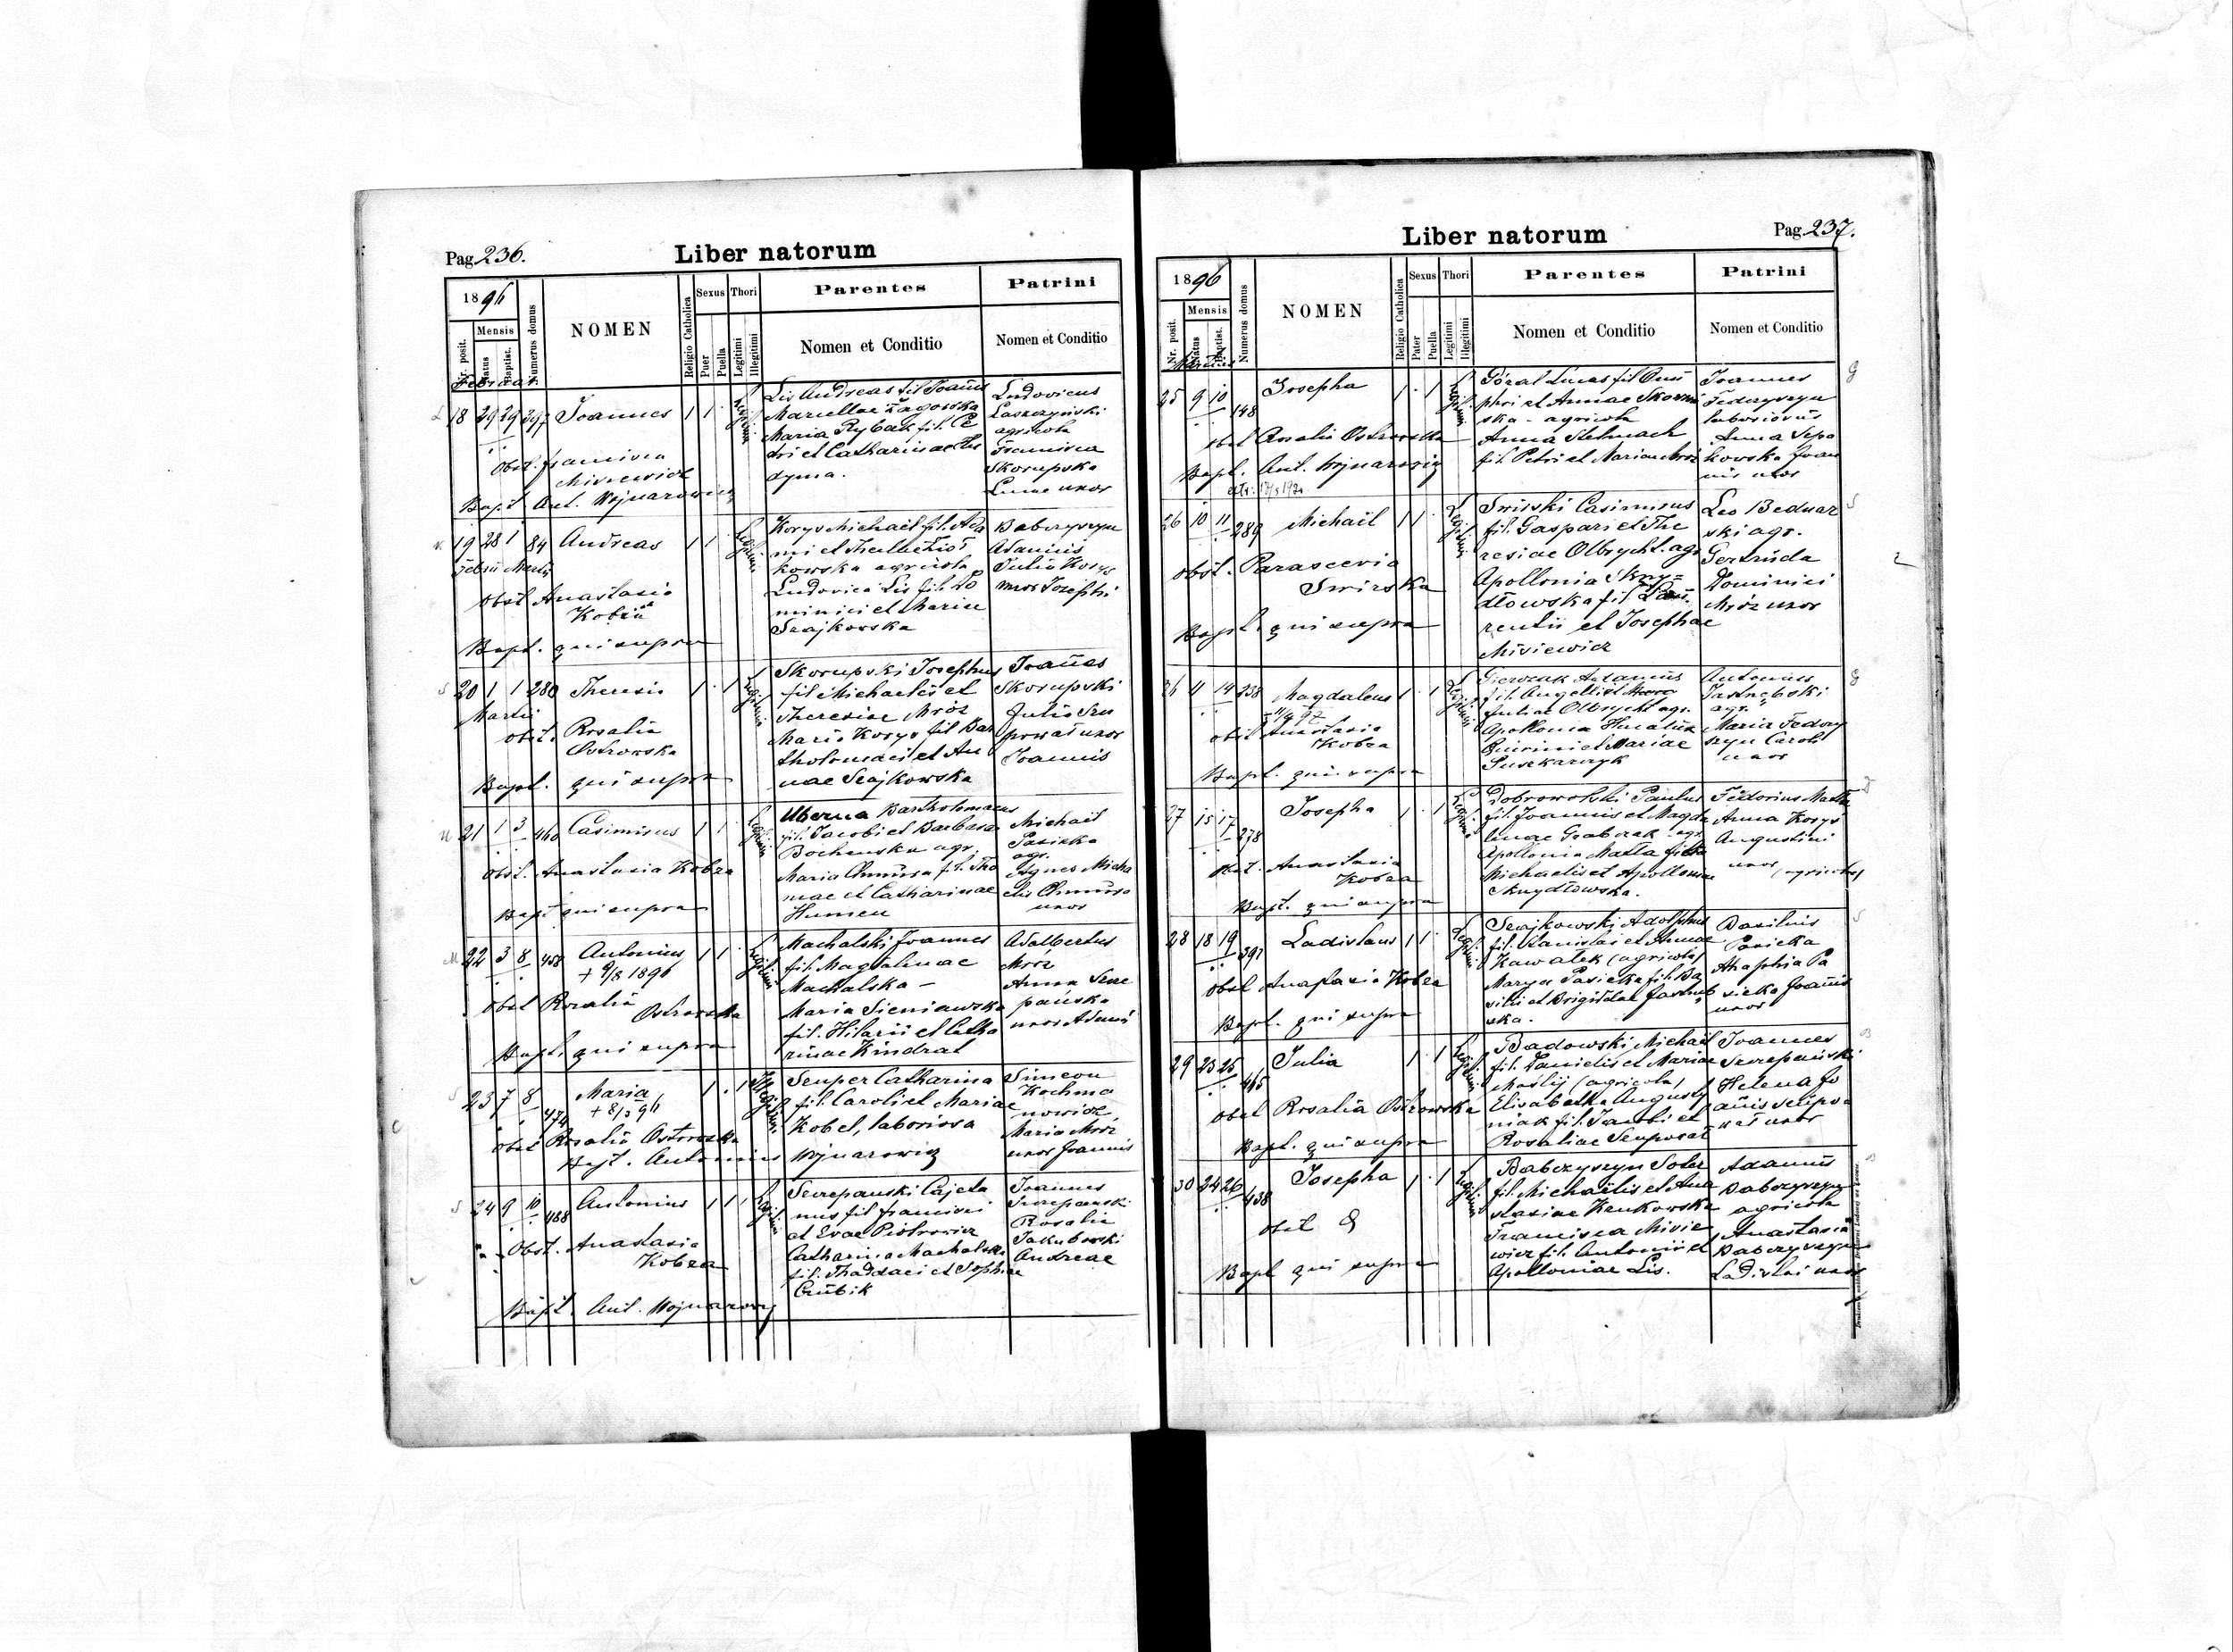 Pag. 236.
Liber natorum
1896
Nr. posit.
Mensis
Natus
Baptist.
Numerus domus
NOMEN
Religio Catholica
Sexus
Puer
Puella
Thori
Legitimi
Illegitimi
Parentes
Nomen et Conditio
Patrini
Nomen et Conditio
Februar.
18 29 29 397 Joannes 1 1
Obst. Francisca
Misiewicz
Bapt. Ant. Wojnarowicz
Lis Andreas fil. Joannis
Mariellae Zagorska
Maria Rybak fil. Pe
tri et Catharinae
dyma.
Ludovicus
Laszczyński
agricola
Francisca
Skorupska
Lucae uxor
19 28 1 84 Andreas 1 1
Februarii Martii
Obst Anastasia
Kobza
Bapt. qui supra
Korys Michaël fil. Ada
mi et
kowska agricola
Ludovica Lis fil. Do
minici et Mariae
Szajkowska
Babczyszyn
Adamus
Julia Korys
uxor Josephi
20 1 1 280 Theresia 1 1
Martii
Obst. Rosalia
Ostrowska
Bapt. qui supra
Skorupski Josephus
fil. Michaelis et
Theresiae Mróz
Maria Korys fil. Bar
tholomaei et An
nae Szajkowska
Joannes
Skorupski
Julia Szu
powat uxor
Joannis
21 1 3 460 Casimirus 1 1
Obst. Anastasia Kobza
Bapt qui supra
Uberna Bartholomaeus
fil. Jacobi et Barbara
Bochenska agr.
Maria Chmura fil. Tho
mae et Catharinae
Humen
Michaël
Pasieka
agr.
Agnes Micha
elis Chmura
uxor
22 3 8 458 Antonius 1 1
+ 9/3 1896
Obst Rosalia Ostrowska
Bapt. qui supra
Machalski Joannes
fil. Magdalenae
Machalska –
Maria Sieniawska
fil. Hilarii et Catha
rinae Kindrat
Adalbertus
Mróz
Anna Szcze
pańska
uxor Adami
23 7 8 474 Maria 1 1
+ 8/3 96
Obst Rosalia Ostrowska
Bapt. Antonius Wojnarowicz
Szuper Catharina
fil. Caroli et Mariae
Kobel, laboriosa
Simeon
Kochma
nowicz
Maria Mróz
uxor Joannis
24 9 10 488 Antonius 1 1
Obst. Anastasia
Kobza
Bapt. Ant. Wojnarowicz
Szczepanski Cajeta
nus fil. Francisci
et Evae Piotrowicz
Catharina Machalska
fil. Thaddaei et Sophiae
Cubik
Joannes
Szczepanski
Rosalia
Jakubowski
Andreae
Pag. 237.
Liber natorum
1896
Nr. posit.
Mensis
Natus
Baptist.
Numerus domus
NOMEN
Religio Catholica
Sexus
Pater
Puella
Thori
Legitimi
Illegitimi
Parentes
Nomen et Conditio
Patrini
Nomen et Conditio
Martius
25 9 10 148 Josepha 1 1
Obst Rosalia Ostrowska
Bapt. Ant. Wojnarowicz
Góral Lucas fil. Onu
phri et Annae Skorup
ska - agricola
Anna Stelmach
fil. Petri et Mariae Mróz
Joannes
Fedczyszyn
laboriosus
Anna Sepo
kowska Joan
nis uxor
26 10 11 289 Michaël 1 1
Obst. Parascevia
Swirska
Bapt. qui supra
Swirski Casimirus
fil. Gaspari et The
resiae Olbrycht. agr
Apollonia Skrzy=
dłowska fil. Lau
rentii et Josephae
Misiewicz
Leo Bednar
ski agr.
Gertruda
Dominici
Mróz uxor
26 11 14 238 Magdalena 1 1
Obst Anastasia
Kobza
Bapt. qui supra
Adamus
fil.
Juliae Olbrycht agr.
Apollonia
Quirini et Mariae
Antonius
Jastrzębski
agr.
Maria Fedory
szyn Caroli
uxor
27 15 17 278 Josepha 1 1
Obst. Anastasia
Kobza
Bapt. qui supra
Dobrowolski Paulus
fil. Joannis et Magda
lenae Grabczak agr
Apollonia Matla filia
Michaelis et Apolloniae
Skrzydłowska.
Fedorius Matla
Anna Korys
Augustini
uxor (agricolae)
28 18 19 391 Ladislaus 1 1
Obst Anastasia Kobza
Bapt. qui supra
Szajkowski Adolphus
fil. Stanislai et Annae
Kawałek (agricola)
Marya Pasieka fil. Ba
silii et Brigittae Jastrzęb
ska.
Basilius
Pasieka
Anaphia Pa
sieka Joannis
uxor
29 23 25 465 Julia 1 1
Obst Rosalia Ostrowska
Bapt. qui supra
Badowski Michaël
fil. Danielis et Mariae
Maślij (agricola)
Elisabetha Augusty
niak fil. Jacobi et
Rosaliae Szupowat
Joannes
Szczepański
Helena Jo
annis Szupo
wat uxor
30 24 26 438 Josepha 1 1
Obst
Bapt qui supra
Babczyszyn Soter
fil. Michaëlis et Ana
stasiae Kenkowska
Francisca Misie
wicz fil. Antonii et
Apolloniae Lis.
Adamus
Babczyszyn
agricola
Anastasia
Babczyszyn
Ladislai uxor